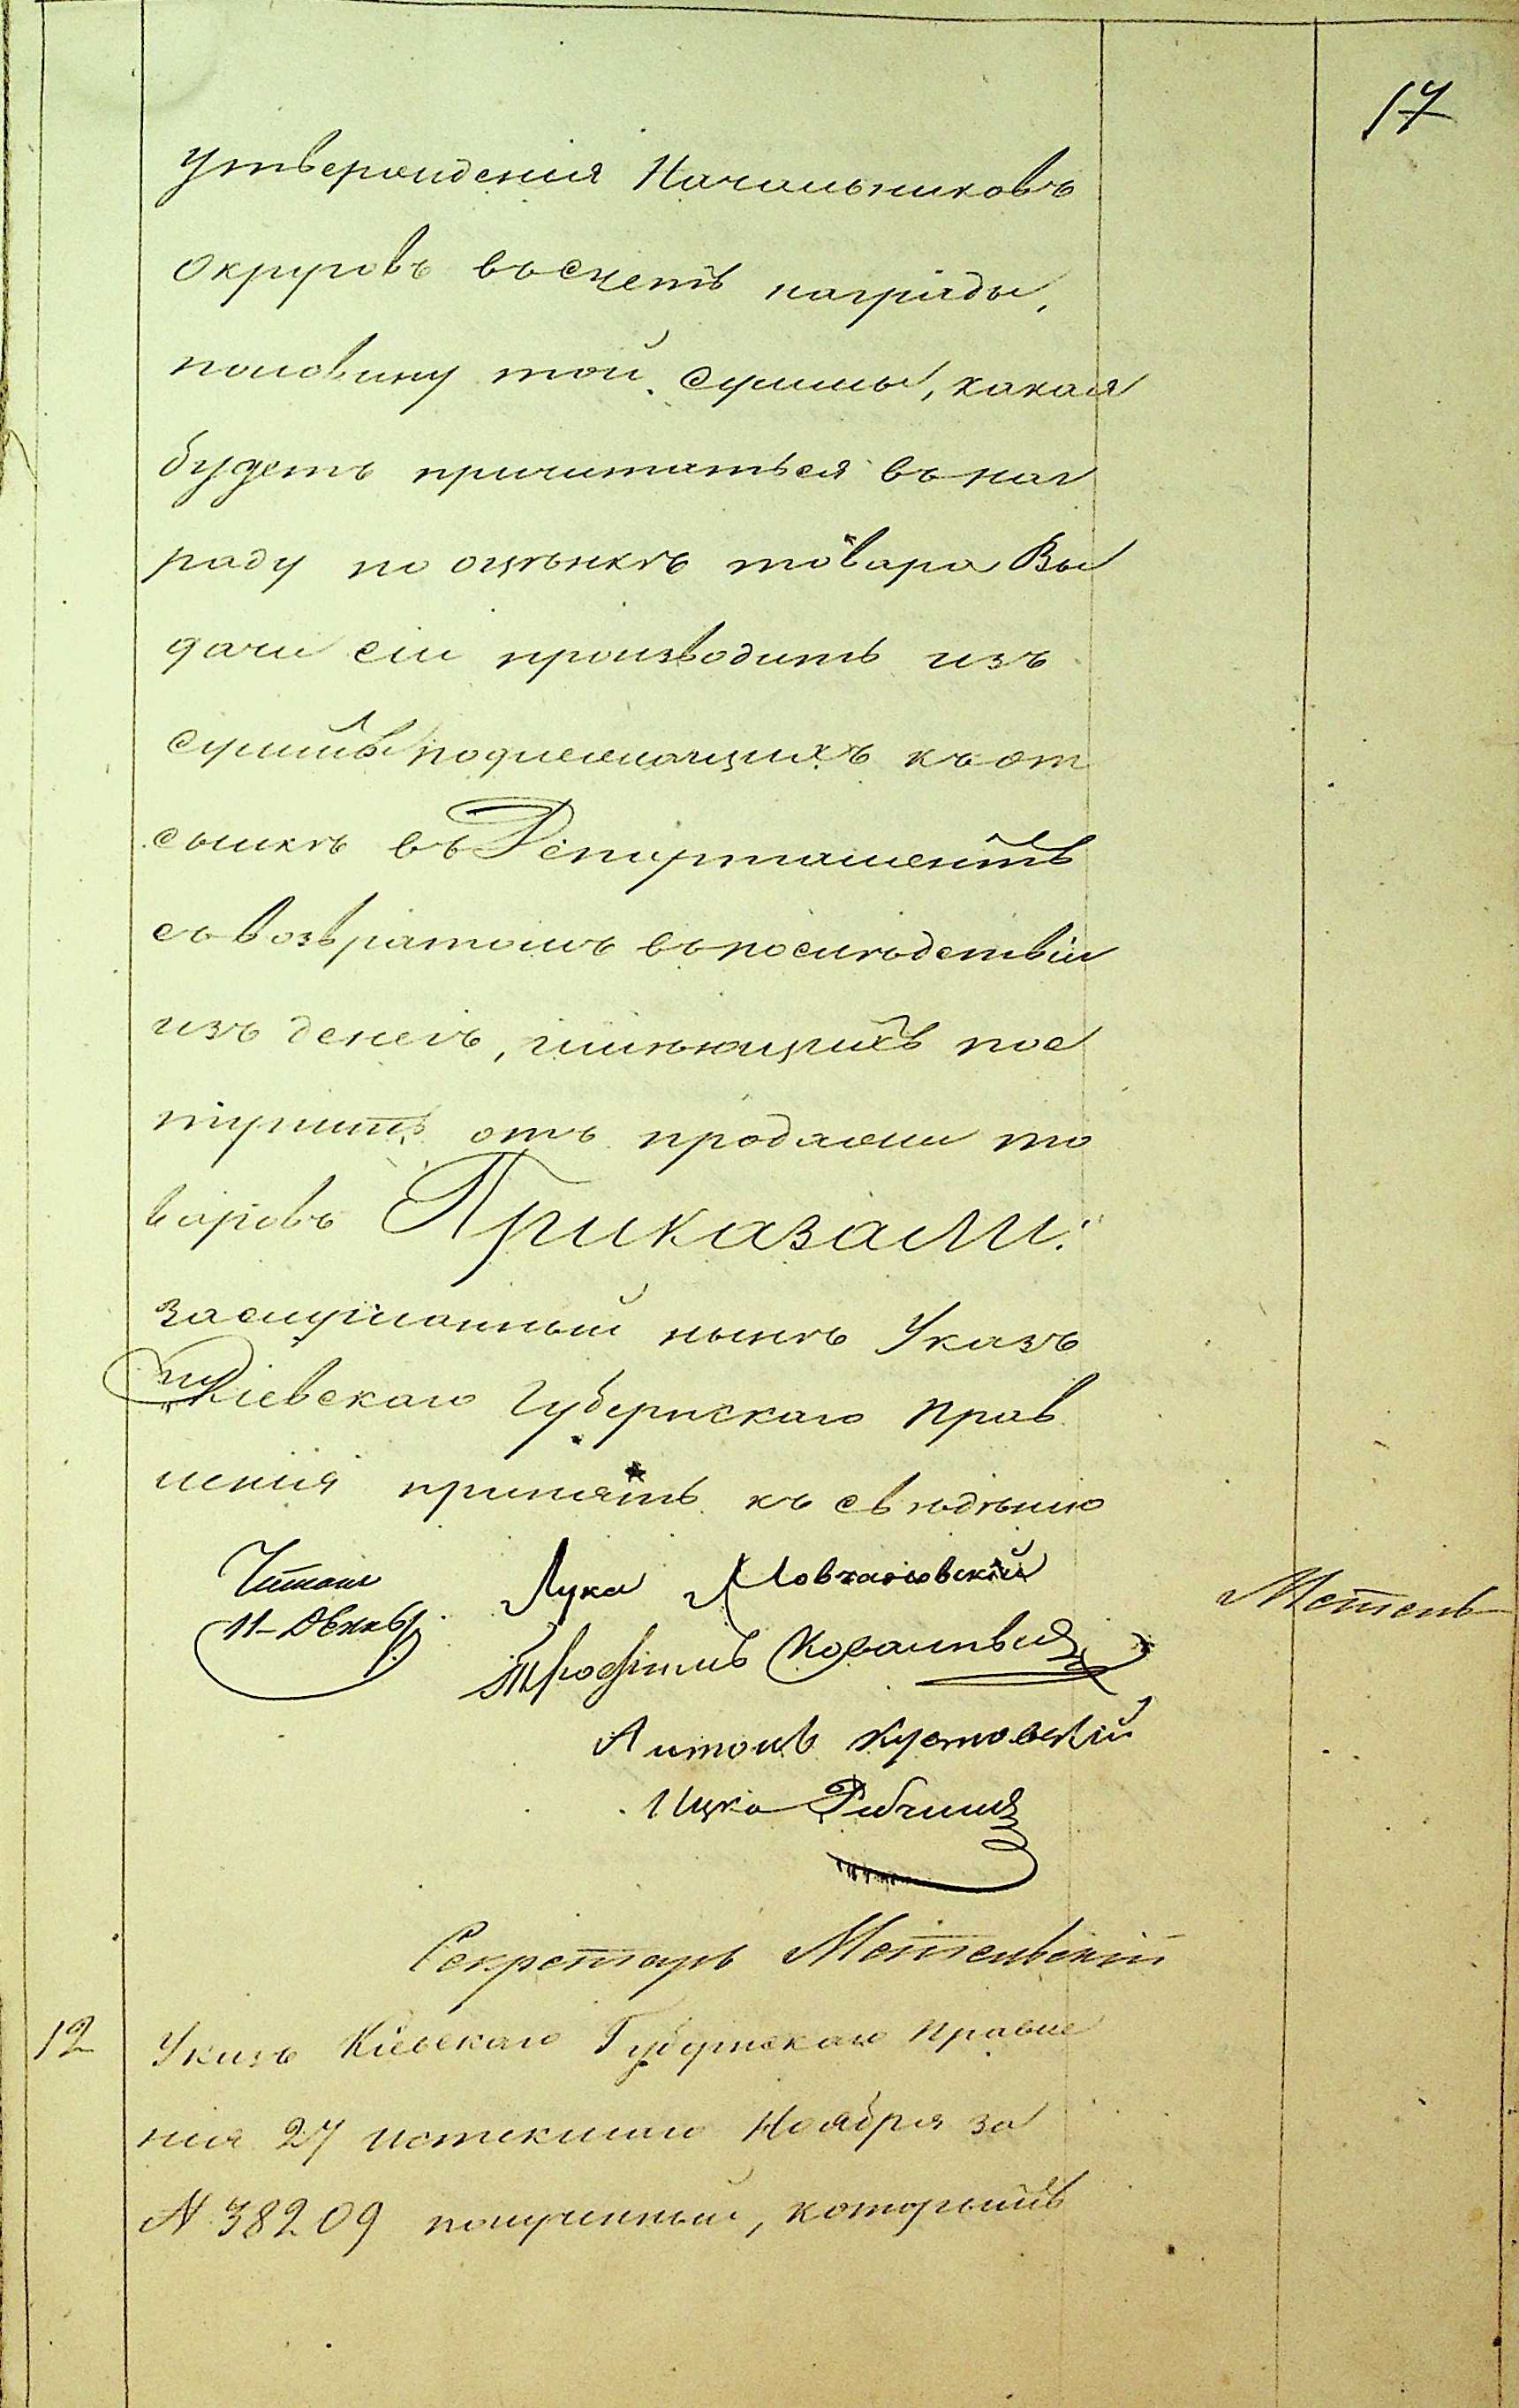 17
утвержденія Начальниковъ
округовъ въ счетъ награды,
половину той суммы, какая
будетъ причитаться въ наг
раду по оцѣнкѣ товара Вы
дачи сіи производить изъ
суммъ подлежащихъ къ от
сылкѣ въ Департаментъ
съ возвратомъ въ послѣдствіи
изъ денегъ, имѣющихъ пос
тупить отъ продажи то
варовъ Приказали:
заслушанный нынѣ Указъ
Кіевскаго Губернскаго Прав
ленія принять къ свѣдѣнію
Читалъ
11 Декаб.
Лука
Трофимъ
Антонъ Кустовскій
Ицко
Метель
Секретарь Метельскій
12 Указъ Кіевскаго Губернскаго Правле
нія 27 истекшаго Ноября за
N 38209 полученный, которымъ